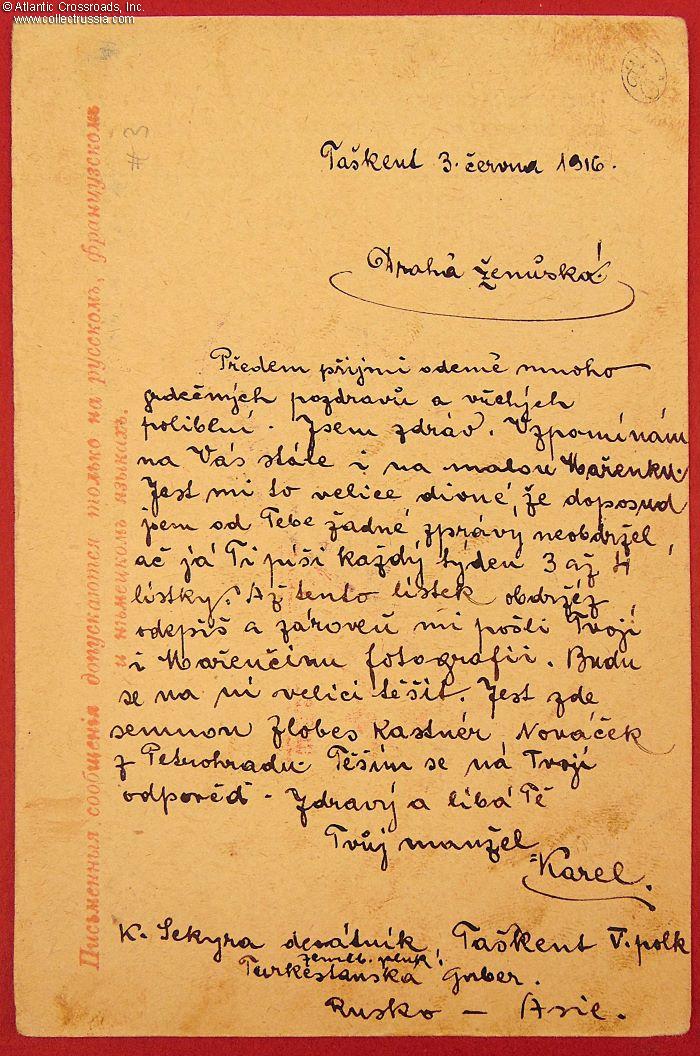 © Atlantic Crossroads, Inc.
www.collectrussia.com
# 3
Письменныя сообщенія допускаются только на русскомъ, французскомъ
и нѣмецкомъ языкахъ.
Taškent 3. června 1916.
Drahá ženůska!
Předem přijmi odemě mnoho
srdečných pozdravů a vřelých
políbení. Jsem zdráv. Vzpomínám
na Vás stále i na malou Mařenku.
Jest mi to velice divné, že doposud
jsem od Tebe žádné zprávy neobdržel,
ač já Ti píši každý týden 3 až 4
lístky. Až tento lístek obdržéz
odepiš a zároveň mi pošli Tvojí
i Mařenčinu fotografii. Budu
se na ní velici těšit. Jest zde
semnou Zlobes Kastnér Nováček
z Petrohradu. Těším se ná Tvojí
odpověď. Zdravý a líbá Tě
Tvůj manžel
Karel.
K. Sekyra Taškent V. polk
Turkestanska guber.
Rusko — Asie.